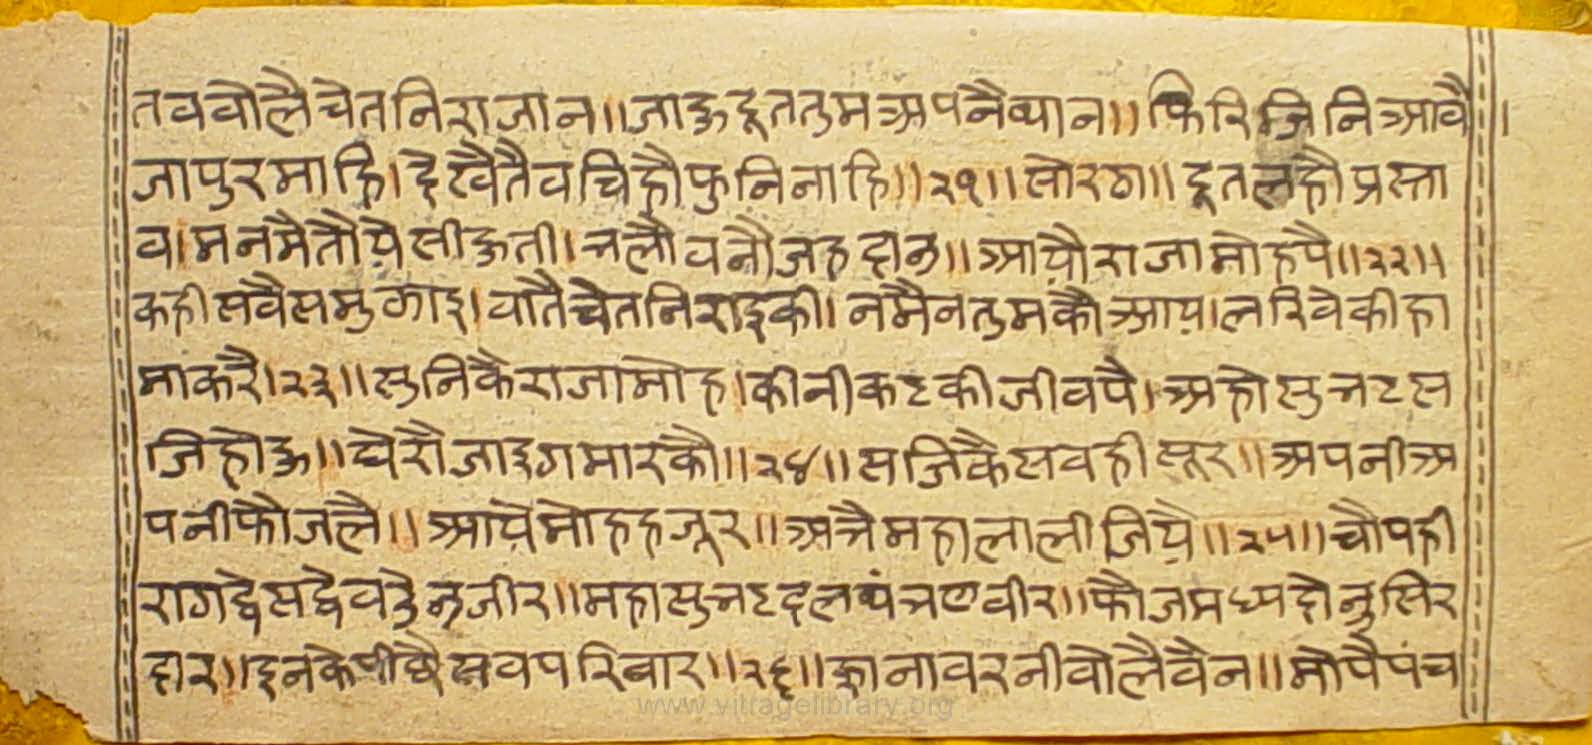 तववोलैचेतनिराजान॥जाऊदूततुमअपनैथान॥फिरिजिनिआवै।
जापुरमाहि।देखैतैवचिहौफुनिनाहि॥२१॥सोरठा॥दूतलहौप्रस्ता
व।मनमैतौयेसीऊती।चलौवनौजहदाउ॥आयौराजामोहपै॥२२॥
कहीसवैसमुझाइ।वातैचेतनिराइकी।नमैनतुमकौआय।लरिवेकीहा
माकरै।२३॥सुनिकैराजामोह।कीनीकटकीजीवपै।अहोसुभटस
जिहोऊ॥घेरौजाइगमारकौ॥२४॥सजिकैसवहीसूर॥अपनीअ
पनीफौजलै॥आयेमोहहजूर॥अभैमहालालीजिये॥२५॥चौपही
रागद्वेसद्वैवडेउजीर॥महासुभटदलथंभणवीर॥फौजमध्यदोनुसिर
दार॥इनकेपीछैसवपरिवार॥२६॥ज्ञानावरनीवोलैवैन॥मोपैपंच
www.vitragelibrary.org